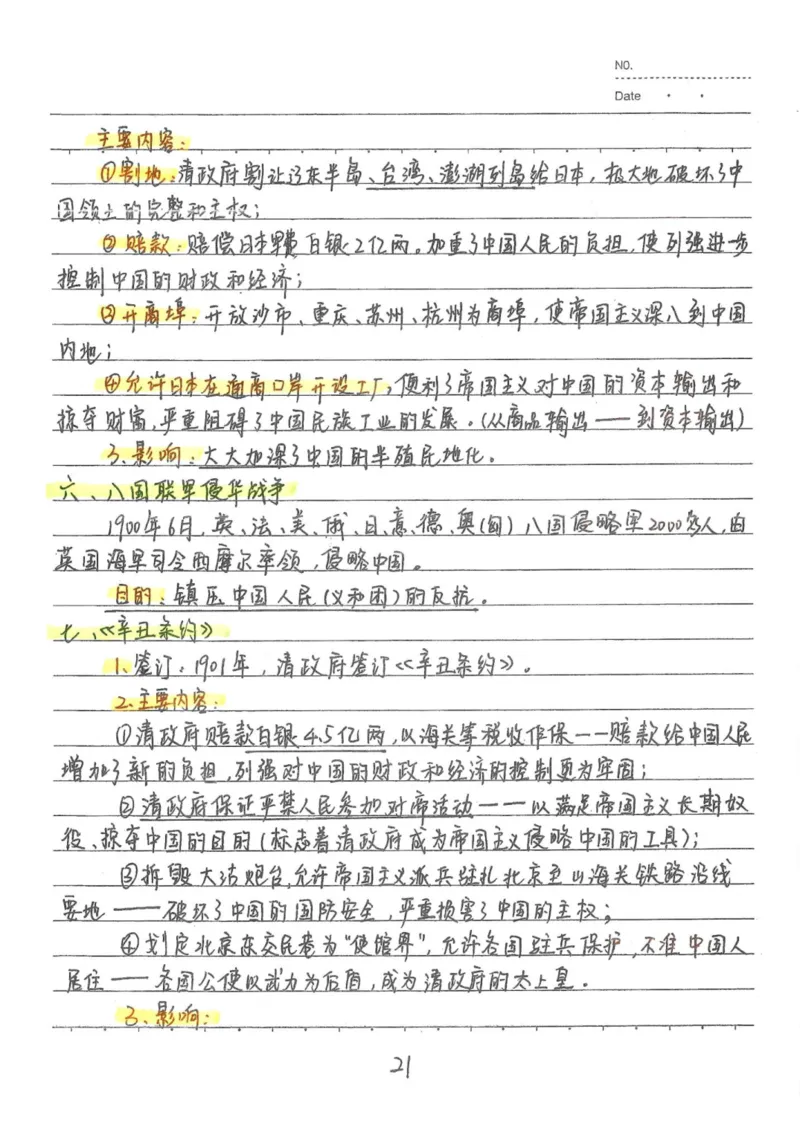 NO.
Date
主要内容:
①割地:清政府割让辽东半岛、台湾、澎湖列岛给日本,极大地破坏了中
国领土的完整和主权;
②赔款:赔偿日本军费白银2亿两。加重了中国人民的负担,使列强进一步
控制中国的财政和经济;
③开商埠:开放沙市、重庆、苏州、杭州为商埠,使帝国主义深入到中国
内地;
④允许日本在通商口岸开设工厂;便利了帝国主义对中国的资本输出和
掠夺财富,严重阻碍了中国民族工业的发展。(从商品输出——到资本输出)
3、影响:大大加深了中国的半殖民地化。
六、八国联军侵华战争
1900年6月,英、法、美、俄、日、意、德、奥(匈)八国侵略军2000多人,由
英国海军司令西摩尔率领,侵略中国。
目的:镇压中国人民(义和团)的反抗。
七、《辛丑条约》
1、签订:1901年,清政府签订《辛丑条约》。
2、主要内容:
①清政府赔款白银4.5亿两,以海关等税收作保——赔款给中国人民
增加了新的负担,列强对中国的财政和经济的控制更为牢固;
②清政府保证严禁人民参加对帝活动——以满足帝国主义长期奴
役、掠夺中国的目的(标志着清政府成为帝国主义侵略中国的工具);
③拆毁大沽炮台,允许帝国主义派兵驻扎北京至山海关铁路沿线
要地——破坏了中国的国防安全,严重损害了中国的主权;
④划定北京东交民巷为"使馆界",允许各国驻兵保护,不准中国人
居住——各国公使以武力为后盾,成为清政府的太上皇。
3、影响:
21